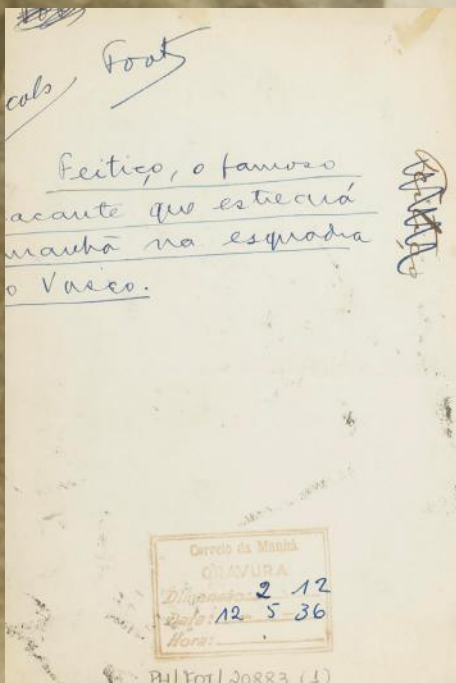 cals, Foot
Feitiço, o famoso
acante que estreará
manhã na esquadra
o Vasco.
Correio da Manhã
GRAVURA
Dimensão: 2 12
Data: 12 5 36
Hora:
PH/FOT/20883 (1)